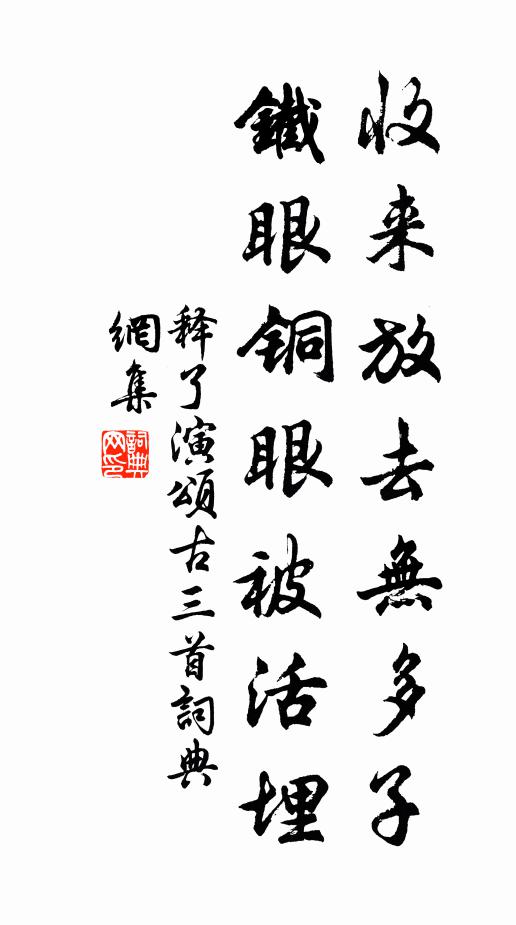 收来放去無多子
鐵眼铜眼被活埋
释了演頌古三首詞典
網集
詞典網印